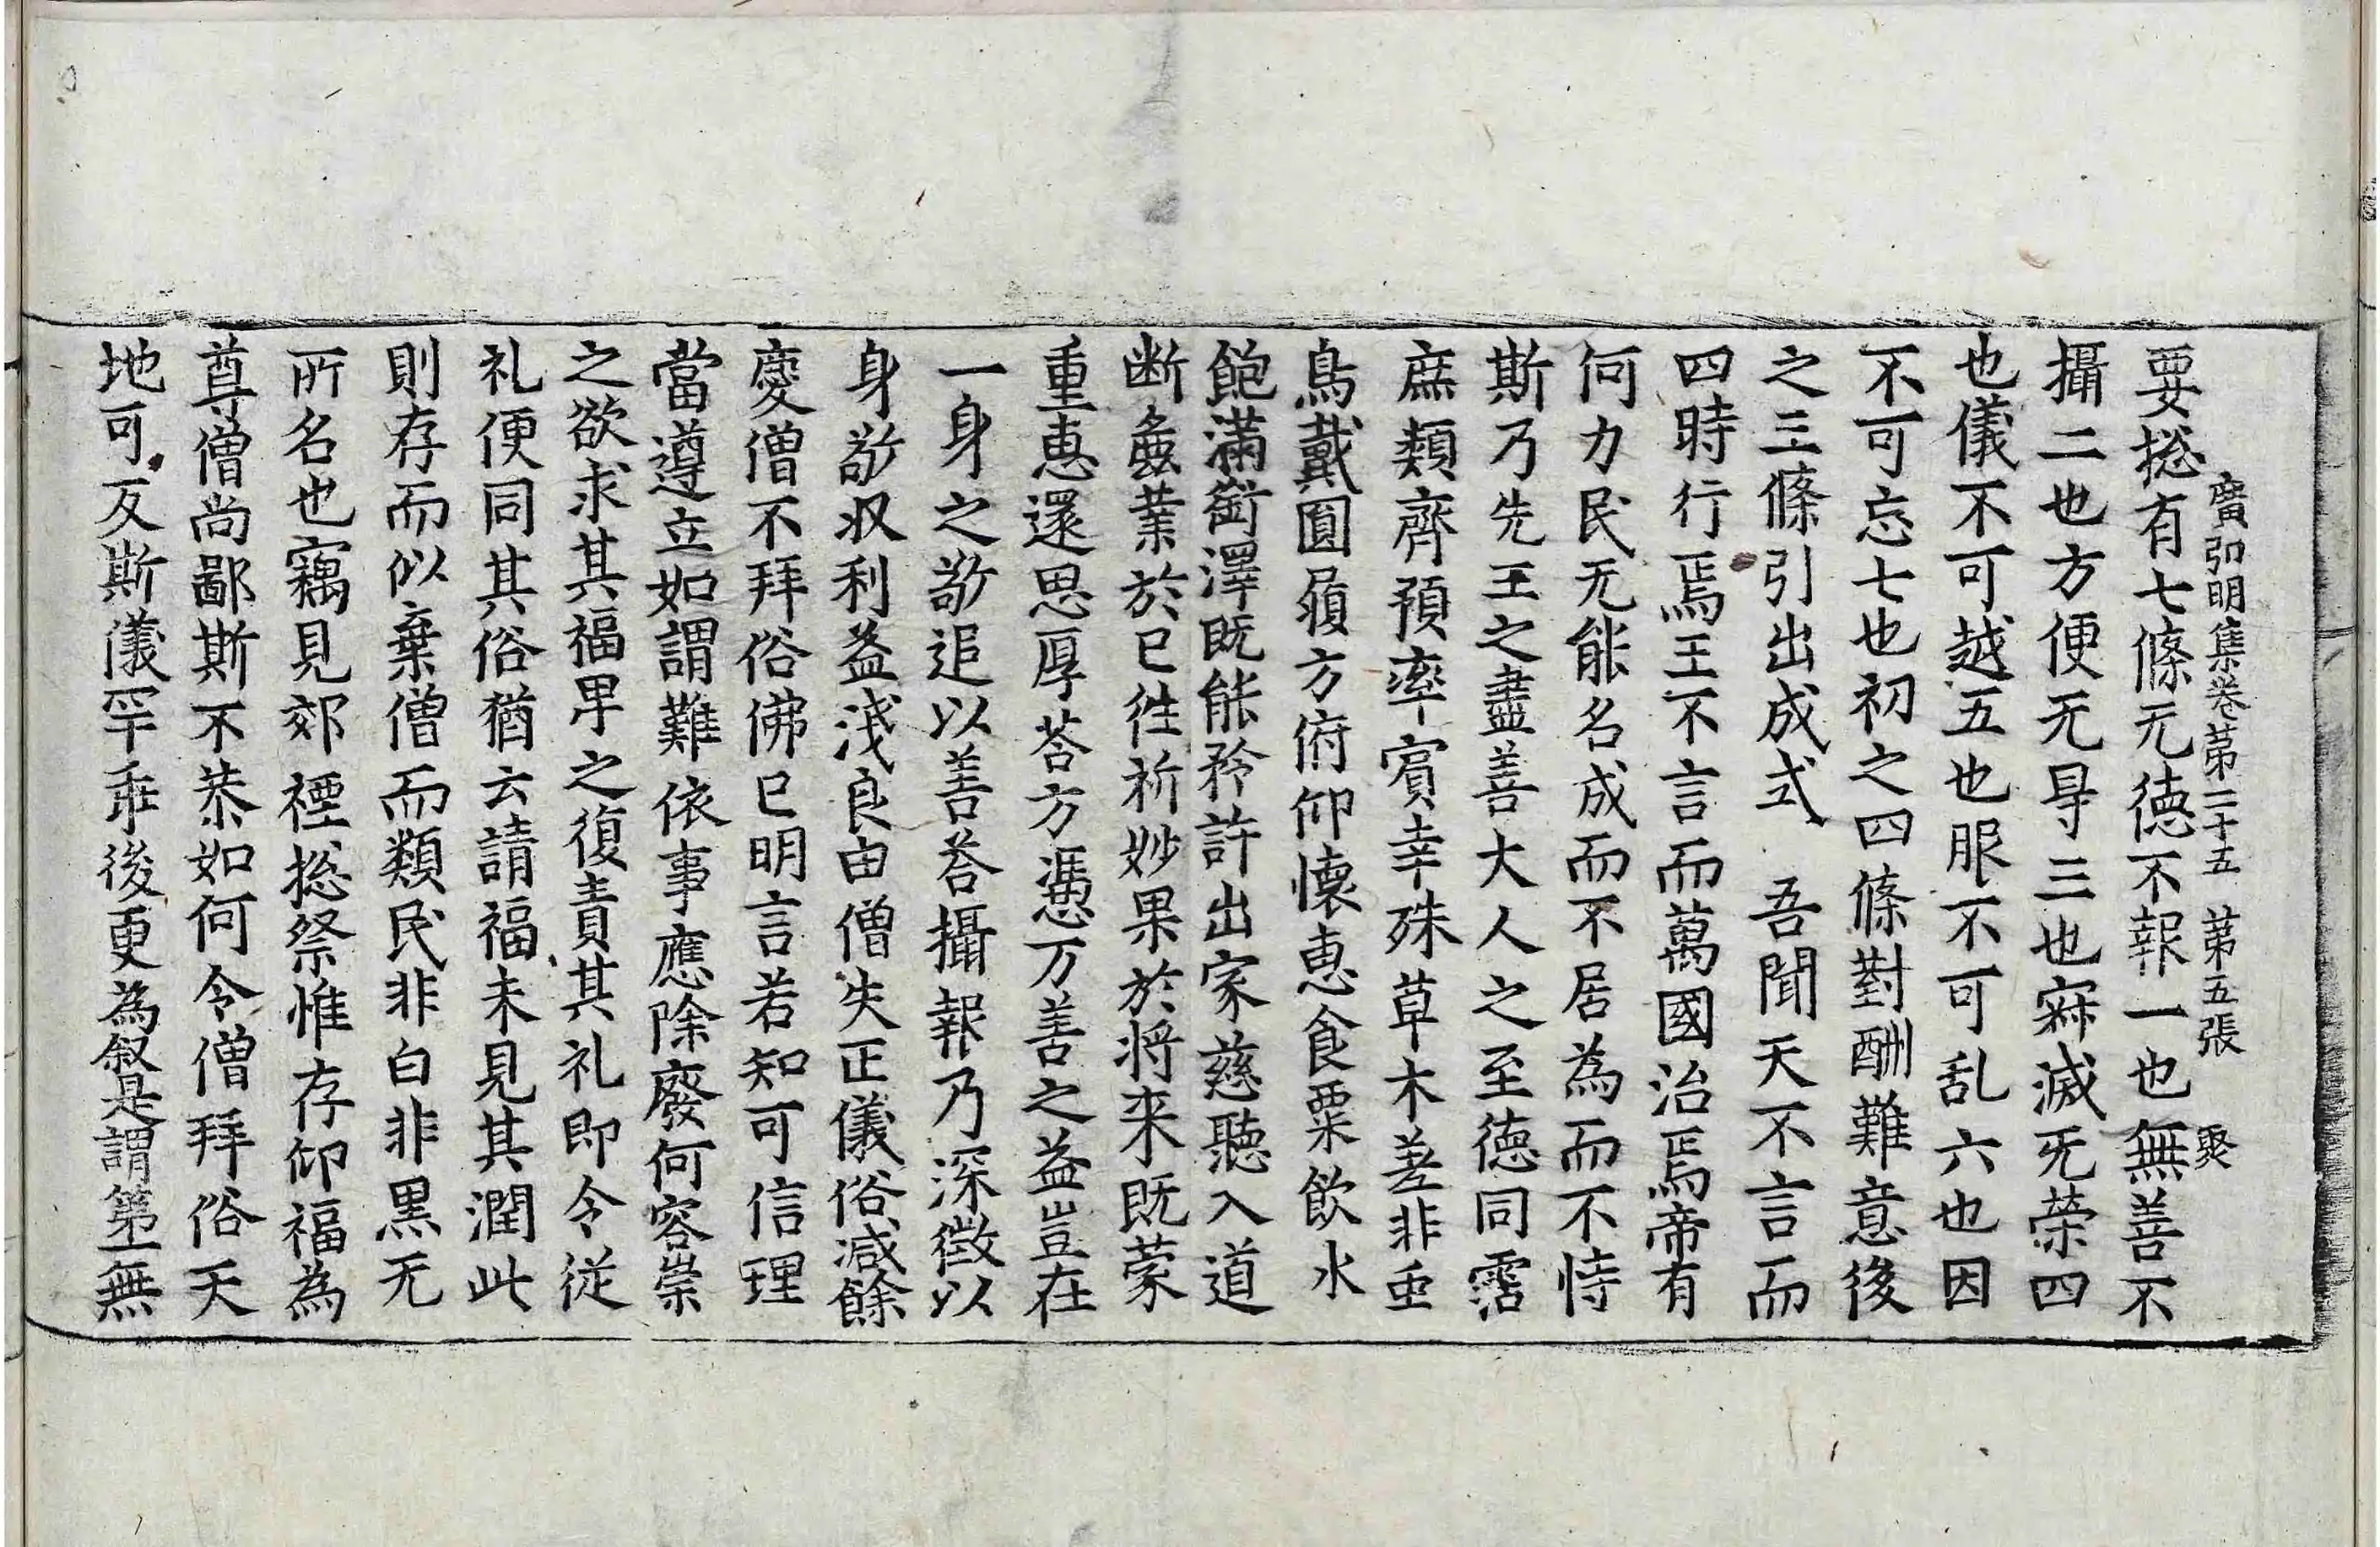 廣弘明集卷第二十五　第五張　聚
要捴有七條无德不報一也無善不
攝二也方便无㝵三也寂滅无榮四
也儀不可越五也服不可乱六也因
不可忘七也初之四條對酬難意後
之三條引出成式　吾聞天不言而
四時行焉王不言而萬國治焉帝有
何力民无能名成而不居為而不恃
斯乃先王之盡善大人之至德同霑
庶類齊預率賓幸殊草木差非虫
鳥戴圓履方俯仰懷恵食粟飲水
飽滿銜澤既能矜許出家慈聽入道
断麁業於已徃祈妙果於將来既蒙
重恵還思厚荅方憑万善之益豈在
一身之敬追以善荅攝報乃深徴以
身敬収利益淺良由僧失正儀俗減餘
慶僧不拜俗佛已明言若知可信理
當遵立如謂難依事應除廢何容崇
之欲求其福卑之復責其礼即令従
礼便同其俗猶云請福未見其潤此
則存而似棄僧而類民非白非黒无
所名也竊見郊禋捴祭惟存仰福為
尊僧尚鄙斯不恭如何令僧拜俗天
地可反斯儀罕乖後更為叙是謂第一無